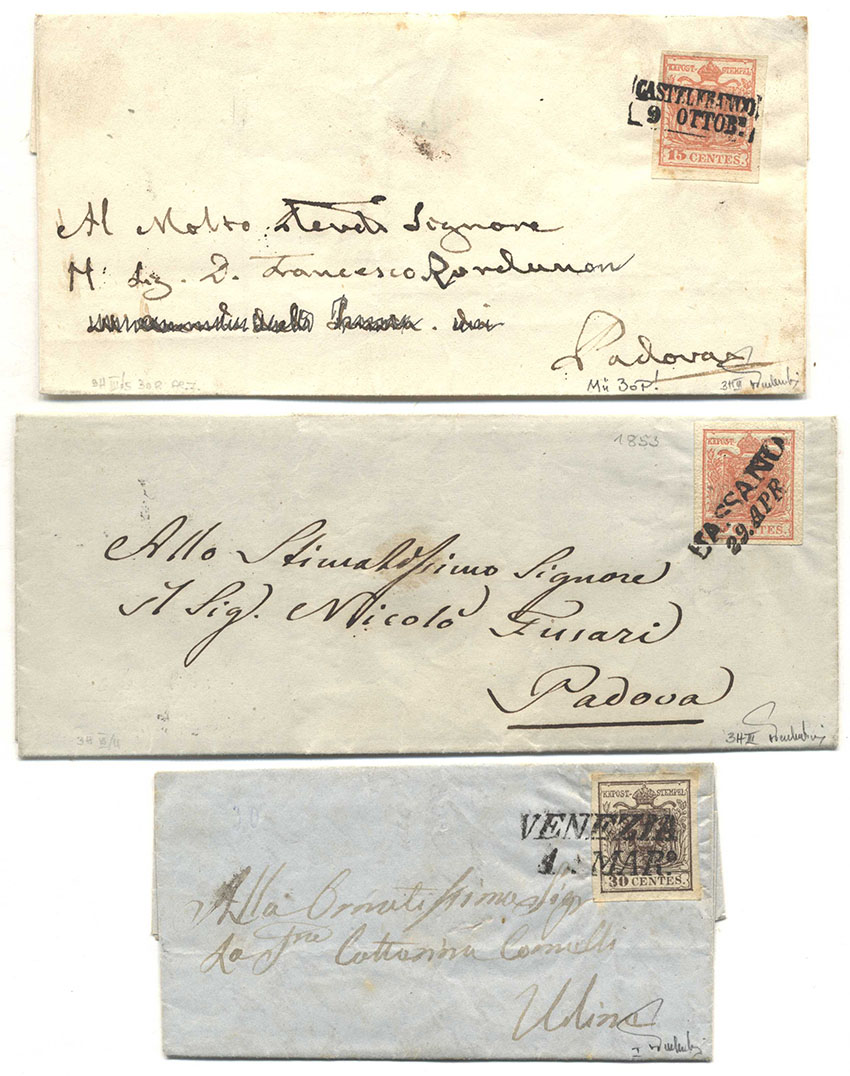 KKPOST-STEMPEL
CASTELFRANCO
9 OTTOBE
15 CENTES.
Al Molto Revdo Signore
Il Sig. D. Francesco
Padova
Mii 30P!
3H III
1853
KKPOST-STEMPEL
BASSANO
29. APR
CENTES.
Allo Stimatissimo Signore
il Sig. Nicolò Fusari
Padova
3H III
KKPOST-STEMPEL
VENEZIA
1 MAR.o
30 CENTES.
Alla Ornatissima Sig
La Cattarina Comelli
Udine
I